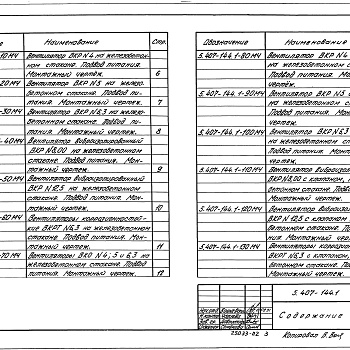 Наименование Стр.
-10МЧ Вентилятор ВКР N4 на железобетон-
ном стакане. Подвод питания.
Монтажный чертёж. 6
-20МЧ Вентилятор ВКР N5 на железо-
бетонном стакане. Подвод пи-
тания. Монтажный чертеж. 7
-30МЧ Вентилятор ВКР N6,3 на железо-
бетонном стакане. Подвод пи-
тания. Монтажный чертеж. 8
-40МЧ Вентилятор виброизолированный
ВКР N8,00 на железобетонном
стакане. Подвод питания. Мон-
тажный чертеж. 9
-50МЧ Вентилятор виброизолированный
ВКР N12,5 на железобетонном
стакане. Подвод питания. Мон-
тажный чертеж. 10
-60МЧ Вентиляторы коррозионностой-
кие ВКРГ N6,3 на железобетонном
стакане. Подвод питания. Мон-
тажный чертеж. 11
-70МЧ Вентиляторы ВКО N4; 5 и 6,3 на
железобетонном стакане. Подвод
питания. Монтажный чертеж. 12
Обозначение Наименование
5.407-144.1-80МЧ Вентилятор ВКР N4
на железобетонном
Подвод питания.
чертеж.
5.407-144.1-90МЧ Вентилятор ВКР N5
на железобетонном
Подвод питания. Монтажный
чертеж.
5.407-144.1-100МЧ Вентилятор ВКР N6,3
на железобетонном
Подвод питания. Монтажный
чертеж.
5.407-144.1-110МЧ Вентилятор виброизол
ВКР N8,00 с клапаном,
бетонном стакане. Подвод
Монтажный чертеж.
5.407-144.1-120МЧ Вентилятор виброизо
ВКР N 12,5 с клапаном
бетонном стакане. Подвод
ния. Монтажный чертеж.
5.407-144.1-130МЧ Вентиляторы коррози
ВКРГ N6,3 с клапаном,
бетонном стакане. Под
ния. Монтажный чертеж.
5.407-144.1
Содержание
25033-02 3 Копировал